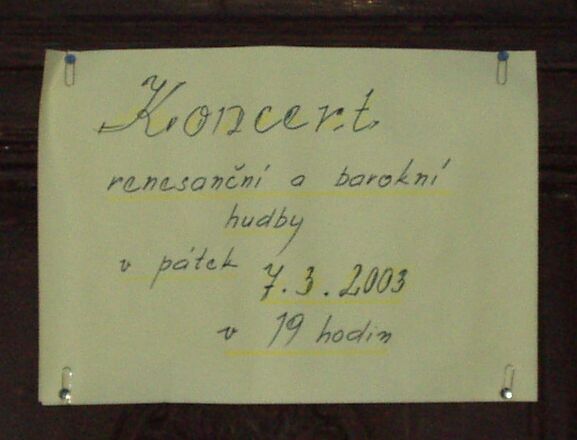 Koncert
renesanční a barokní
hudby
v pátek 7.3.2003
v 19 hodin